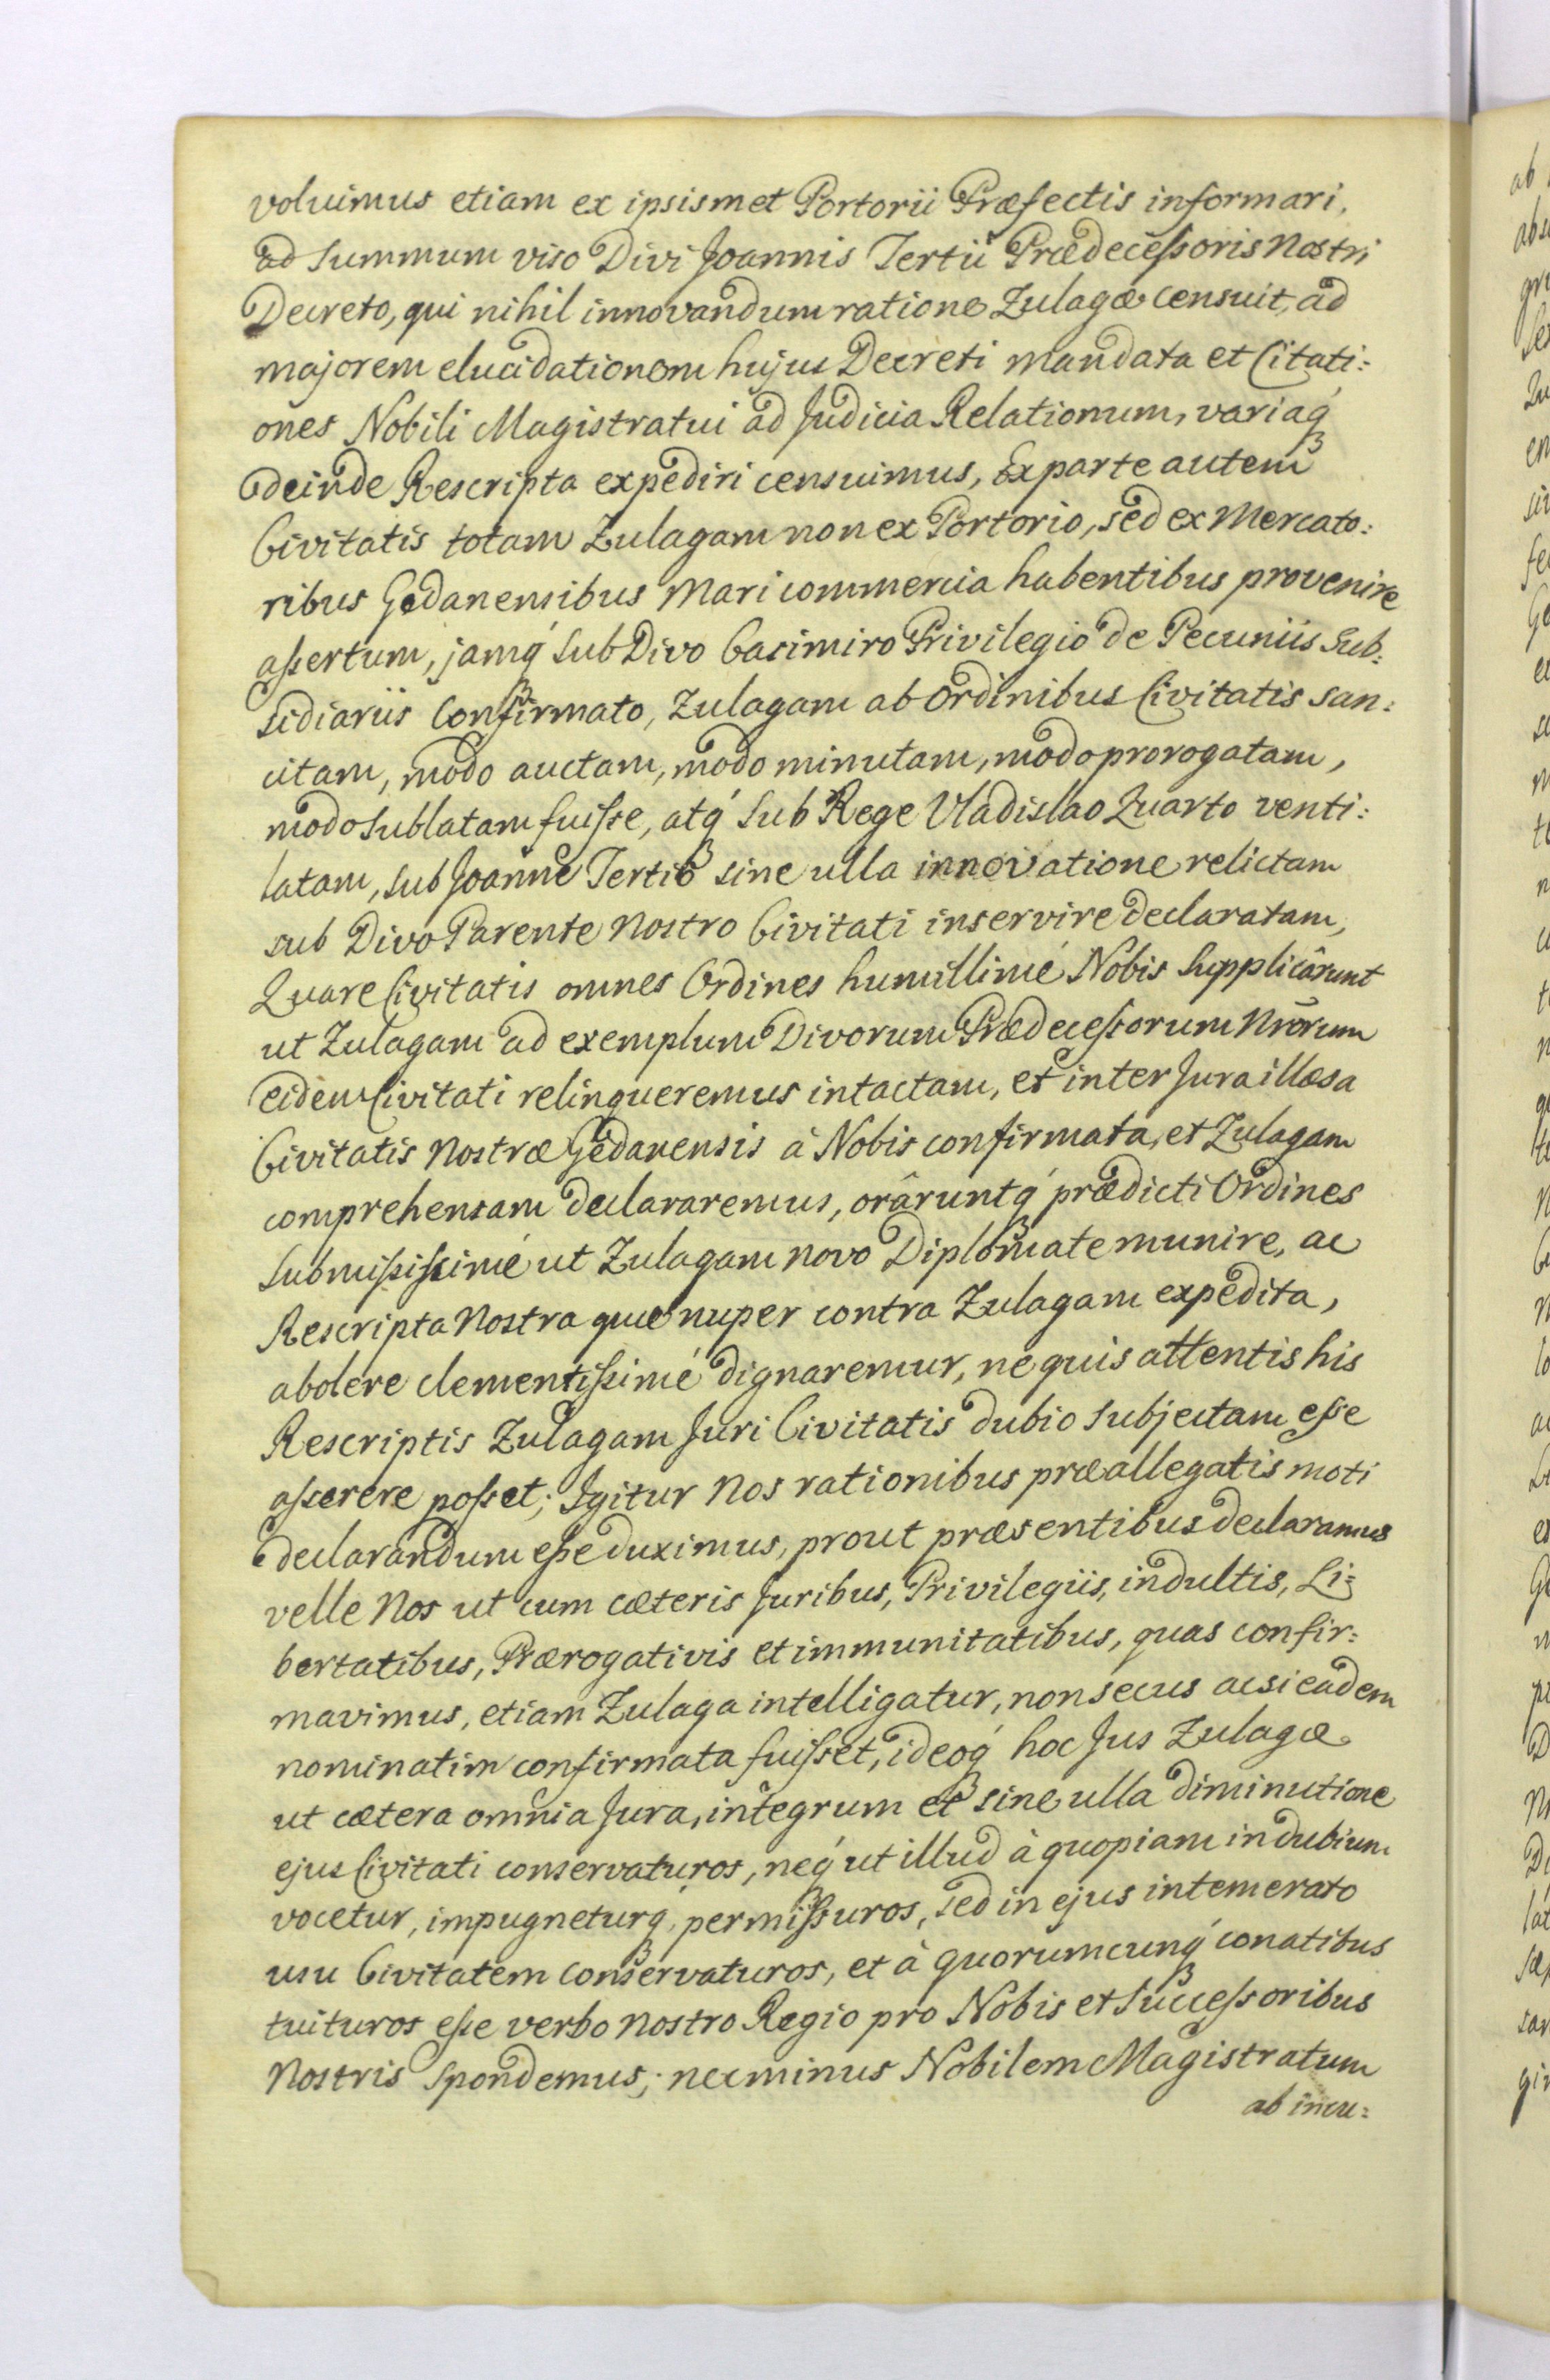 voluimus etiam ex ipsismet Portorii Præfectis informari,
ad summum viso Divi Joannis Tertii Prædecessoris Nostri
Decreto, qui nihil innovandum ratione Zulagæ censuit, ad
majorem elucidationem hujus Decreti mandata et Citati:
ones Nobili Magistratui ad Judicia Relationum, variaq́
deinde Rescripta expediri censuimus, Ex parte autem
Civitatis totam Zulagam non ex Portorio, sed ex Mercato:
ribus Gedanensibus Mari commercia habentibus provenire
assertum, jamq́ sub Divo Casimiro Privilegio de Pecuniis Sub:
sidiariis Confirmato, Zulagam ab Ordinibus Civitatis san:
citam, modo auctam, modo minutam, modo prorogatam,
modo sublatam fuisse, atq́ sub Rege Vladislao Quarto venti:
latam, sub Joanne Tertio sine ulla innovatione relictam
sub Divo Parente Nostro Civitati inservire declaratam,
Quare Civitatis omnes Ordines humillimé Nobis supplicârunt
ut Zulagam ad exemplum Divorum Prædecessorum Nrōrum
eidem Civitati relinqueremus intactam, et inter Jura illæsa
Civitatis Nostræ Gedanensis à Nobis confirmata, et Zulagam
comprehensam declararemus, orâruntq́ prædicti Ordines
submississimé ut Zulagam novo Diplomate munire, ac
Rescripta Nostra quæ nuper contra Zulagam expedita,
abolere clementissimé dignaremur, ne quis attentis his
Rescriptis Zulagam Juri Civitatis dubio subjectam esse
asserere posset; Igitur Nos rationibus præallegatis moti
declarandum esse duximus, prout præsentibus declaramus
velle Nos ut cum cæteris Juribus, Privilegiis, indultis, Li:
bertatibus, Prærogativis et immunitatibus, quas confir:
mavimus, etiam Zulaga intelligatur, non secus ac si eadem
nominatim confirmata fuisset, ideoq́ hoc Jus Zulagæ
ut cætera omnia Jura, integrum et sine ulla diminutione
ejus Civitati conservaturos, neq́ ut illud à quopiam in dubium
vocetur, impugneturq́, permissuros, sed in ejus intemerato
usu Civitatem conservaturos, et à quorumcunq́ conatibus
tuituros esse verbo nostro Regio pro Nobis et Successoribus
Nostris spondemus; nec minus Nobilem Magistratum
ab incu: